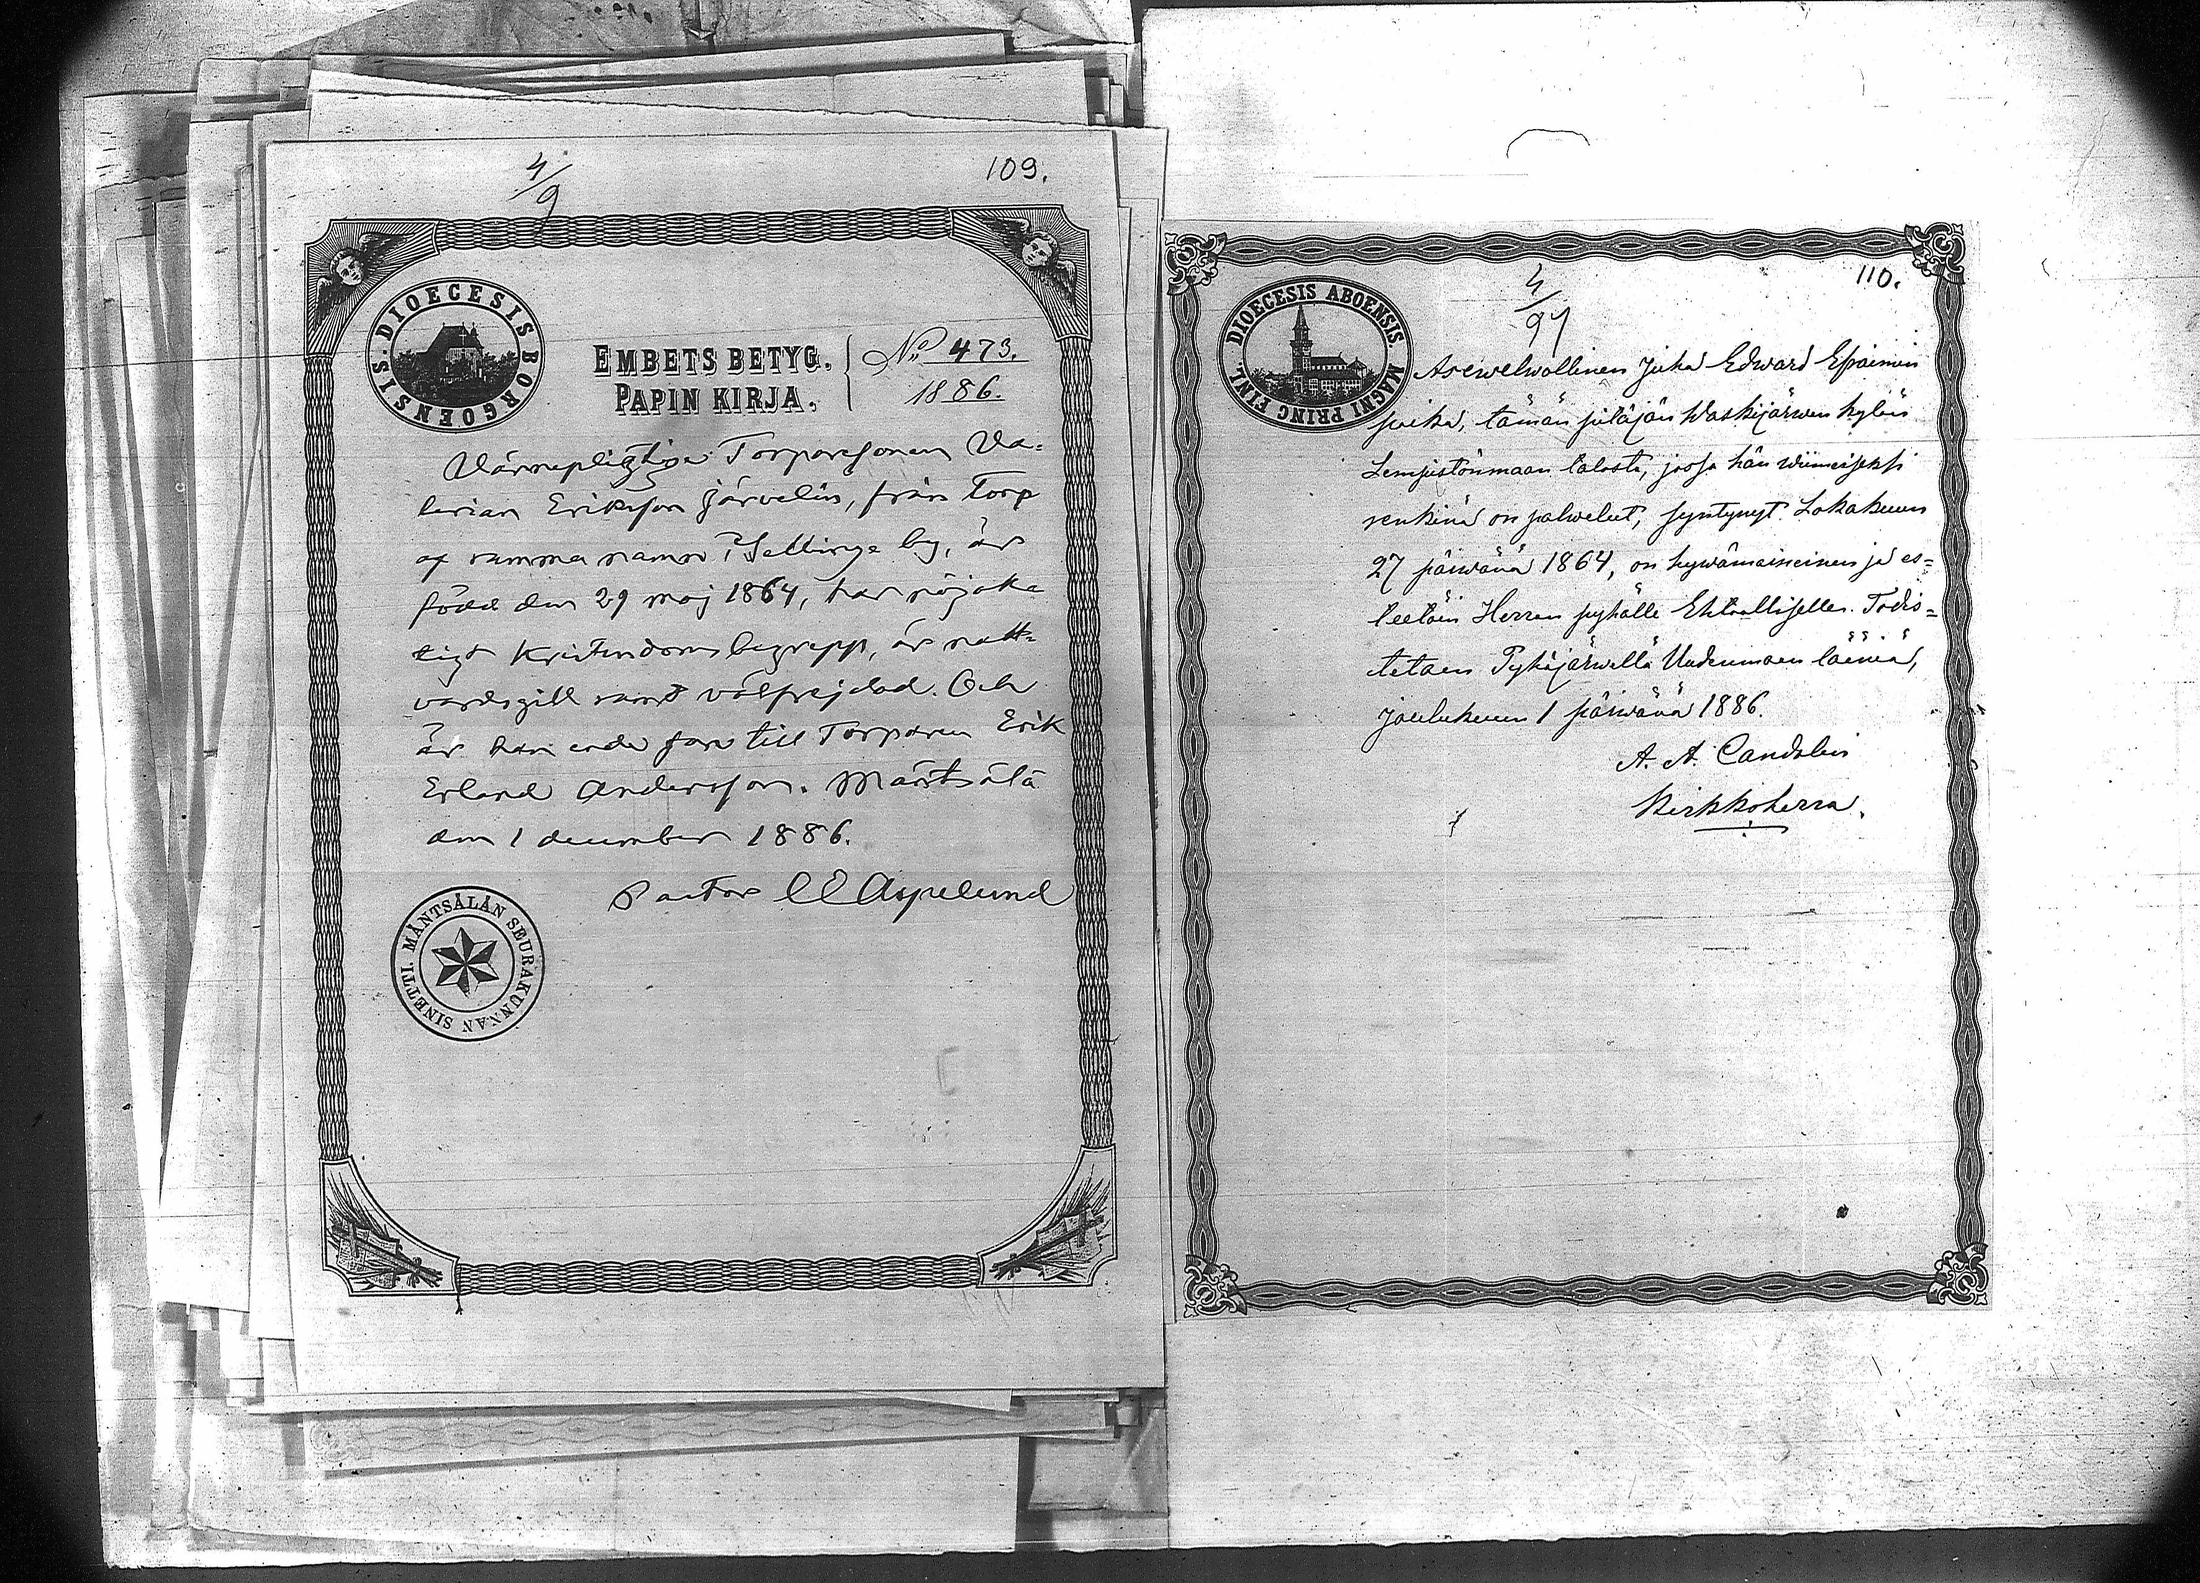 4/9
109.
DIOECESIS BORGOENSIS.
EMBETS BETYG.
PAPIN KIRJA.
No 473.
1886.
Värnepligtige Torparesonen Va-
lerian Eriksson Järvelin, från Torp
af samma namn i Sällinge by, är
född den 29 maj 1864, har nöjak-
tigt Kristendoms begrepp, är natt-
vardsgill samt välfrejdad. Och
är han enda son till Torparen Erik
Erland Andersson. Mäntsälä
den 1 december 1886.
Pastor C E Aspelund
MÄNTSÄLÄN SEURAKUNNAN SINETTI.
4/9
110.
DIOECESIS ABOENSIS. MAGNI PRINC FINL.
Asewelwollinen Juha Edward Efraimin
poika, tämän pitäjän Waskijärwen kylän
talosta, jossa hän wiimeiseksi
renkinä on palwelut, syntynyt Lokakuun
27 päiwänä 1864, on hywämaineinen ja es-
teetöin Herran pyhälle Ehtoolliselle. Todis-
tetaan Pyhäjärwellä Uudenmaan läänia,
joulukuun 1 päiwänä 1886.
A. A. Candolin
Kirkkoherra.